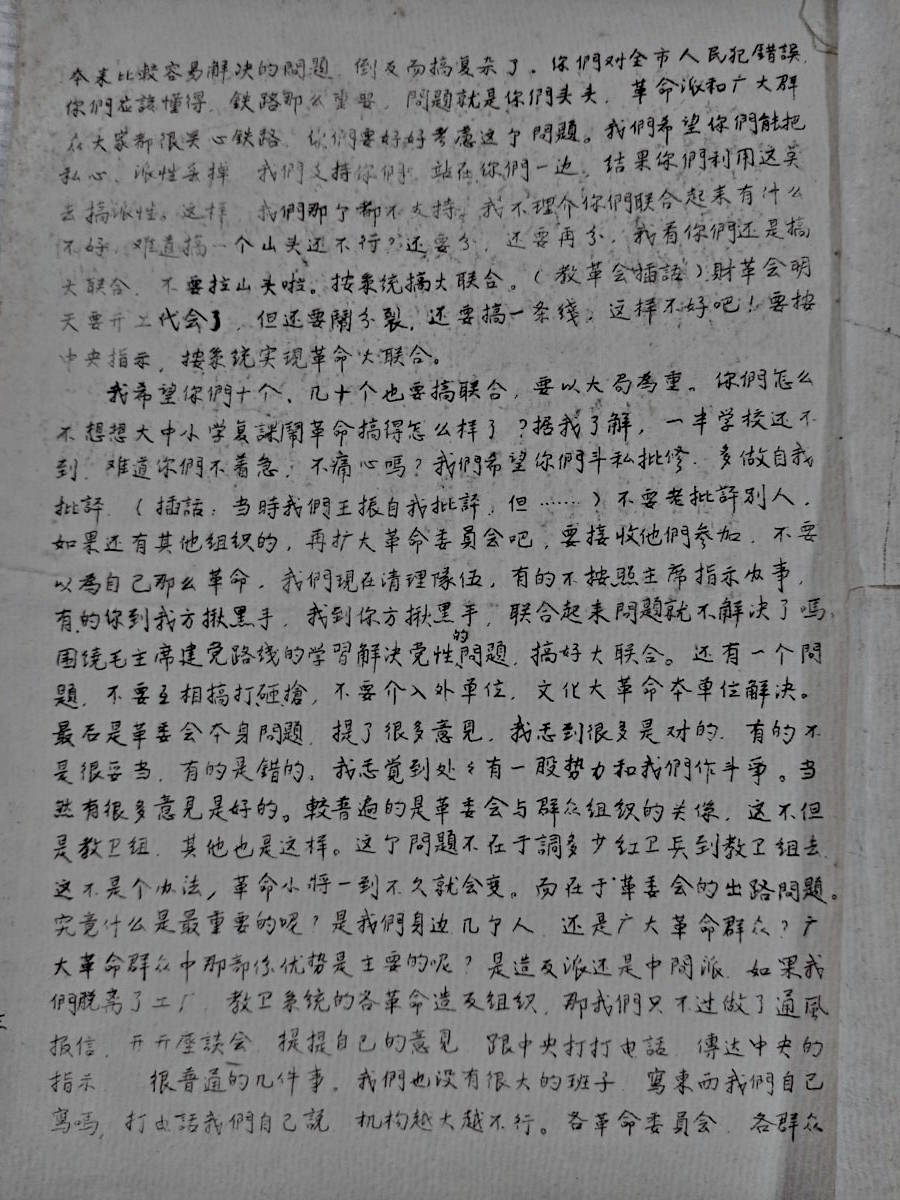 本来比較容易解决的問題，倒反而搞复杂了。你們对全市人民犯錯誤，
你們应該懂得，鉄路那么重要，問題就是你們头头，革命派和广大群
众大家都很关心鉄路，你們要好好考慮这个問題。我們希望你們能把
私心、派性丢掉，我們支持你們，站在你們一边，结果你們利用这莫
去搞派性。这样，我們那个都不支持。我不理介你們联合起来有什么
不好，难道搞一个山头还不行？还要分，还要再分，我看你們还是搞
大联合，不要拉山头啦。按系统搞大联合。（教革会插話）財革会明
天要开工代会了，但还要鬧分裂，还要搞一条线，这样不好吧！要按
中央指示，按系统实現革命大联合。
我希望你們十个、几十个也要搞联合，要以大局為重。你們怎么
不想想大中小学复課鬧革命搞得怎么样了？据我了解，一半学校还不
到，难道你們不着急，不痛心嗎？我們希望你們斗私批修，多做自我
批評，（插話：当時我們王振自我批評，但……）不要老批評別人，
如果还有其他组织的，再扩大革命委員会吧，要接收他們参加，不要
以為自己那么革命。我們現在清理隊伍，有的不按照主席指示办事，
有的你到我方揪黑手，我到你方揪黑手，联合起来問題就不解决了嗎，
围绕毛主席建党路线的学習解决党性的問題，搞好大联合。还有一个問
題，不要互相搞打砸搶，不要介入外单位，文化大革命本单位解决。
最后是革委会本身問題，提了很多意見，我忐到很多是对的，有的不
是很妥当，有的是錯的。我忐覚到处々有一股势力和我們作斗争。当
然有很多意見是好的。較普遍的是革委会与群众组织的关係，这不但
是教卫组，其他也是这样。这个問題不在于調多少红卫兵到教卫组去，
这不是个办法，革命小將一到不久就会变。而在于革委会的出路問題。
究竟什么是最重要的呢？是我們身边几个人，还是广大革命群众？广
大革命群众中那部份优势是主要的呢？是造反派还是中間派，如果我
們脱离了工厂、教卫系统的各革命造反组织，那我們只不过做了通風
报信，开开座談会，提提自己的意見，跟中央打打电話，傳达中央的
指示　很普通的几件事。我們也没有很大的班子，寫东西我們自己
寫嗎，打电話我們自己説，机构越大越不行。各革命委員会，各群众